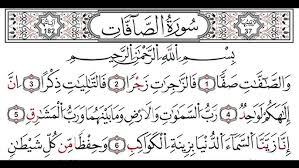 سُورَةُ الصَّافَّاتِ
182 37
بِسْمِ اللَّهِ الرَّحْمَٰنِ الرَّحِيمِ
وَالصَّٰٓفَّٰتِ صَفًّا 1 فَالزَّٰجِرَٰتِ زَجْرًا 2 فَالتَّٰلِيَٰتِ ذِكْرًا 3 إِنَّ
إِلَٰهَكُمْ لَوَٰحِدٌ 4 رَبُّ السَّمَٰوَٰتِ وَالْأَرْضِ وَمَا بَيْنَهُمَا وَرَبُّ الْمَشَٰرِقِ 5
إِنَّا زَيَّنَّا السَّمَآءَ الدُّنْيَا بِزِينَةٍ الْكَوَاكِبِ 6 وَحِفْظًا مِّن كُلِّ شَيْطَٰنٍ